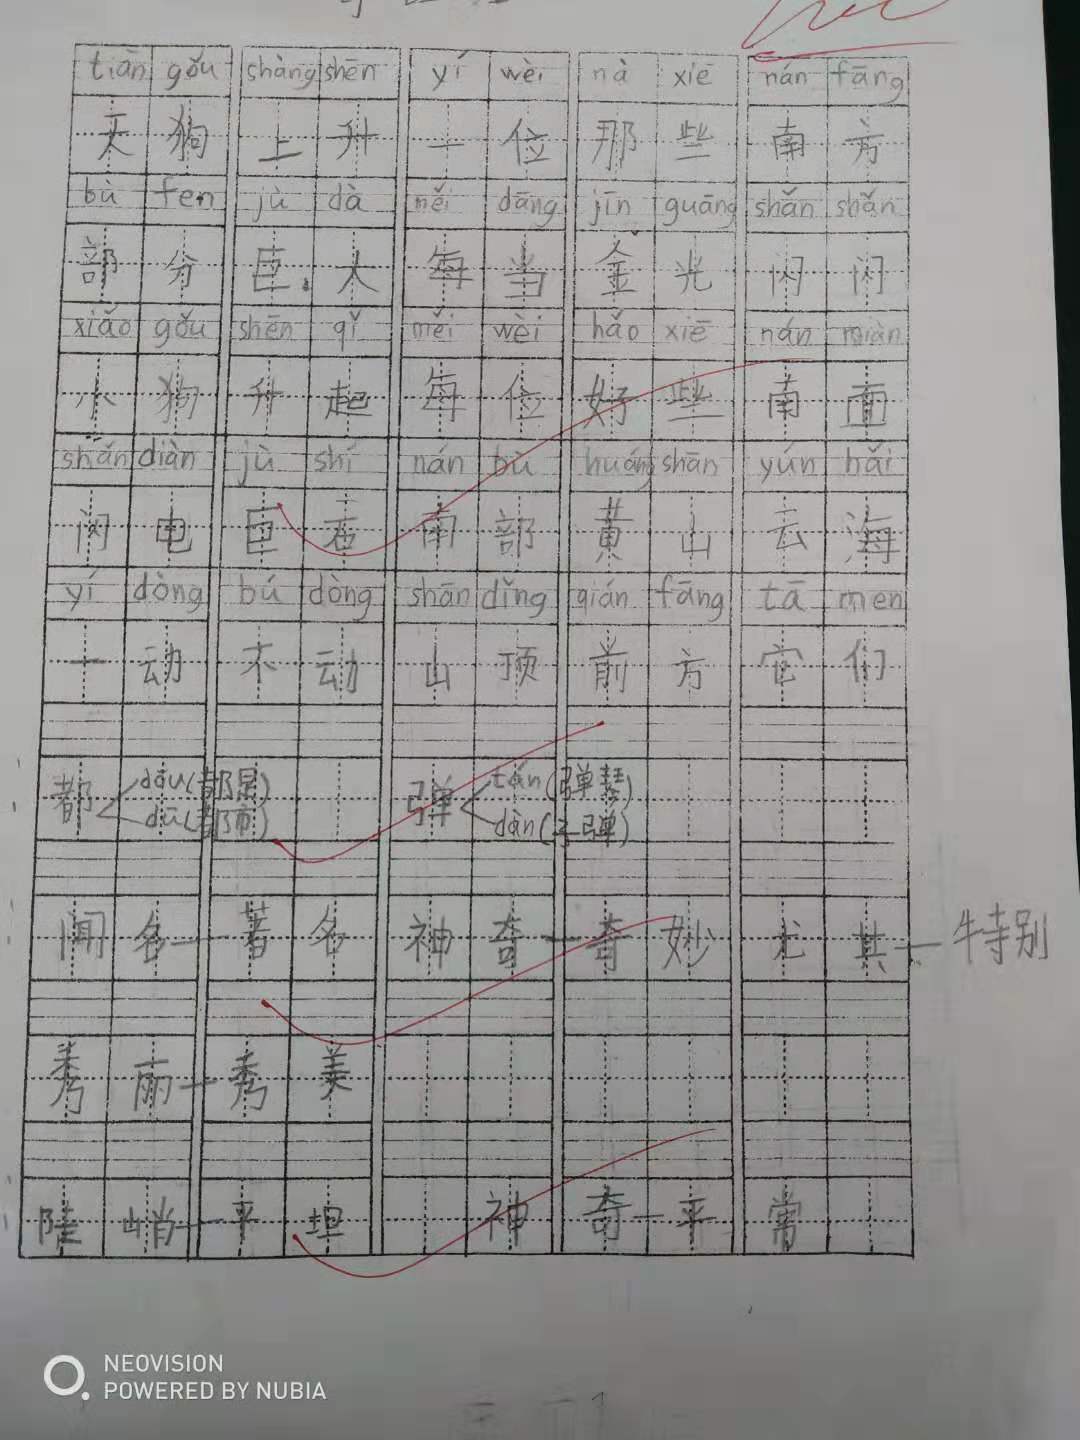 tiān gǒu shàng shēn yí wèi nà xiē nán fāng
天狗 上升 一位 那些 南方
bù fen jù dà měi dāng jīn guāng shǎn shǎn
部分 巨大 每当 金光 闪闪
xiǎo gǒu shēn qǐ měi wèi hǎo xiē nán miàn
小狗 升起 每位 好些 南面
shǎn diàn jù shí nán bù huáng shān yún hǎi
闪电 巨石 南部 黄山 云海
yí dòng bú dòng shān dǐng qián fāng tā men
一动 不动 山顶 前方 它们
都 dōu(都是) 弹 tán(弹琴)
dū(都市) dàn(子弹)
闻名—著名 神奇—奇妙 尤其—特别
秀丽—秀美
陡峭—平坦 神奇—平常
NEOVISION
POWERED BY NUBIA